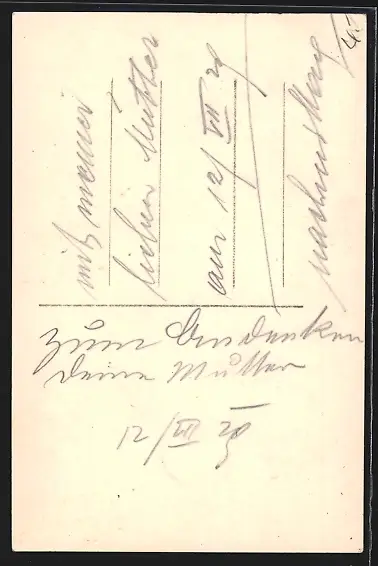 mit meiner
lieben Mutter
am 12/VII 29
nachm
zum Andenken
Deine Mutter
12/VII 29